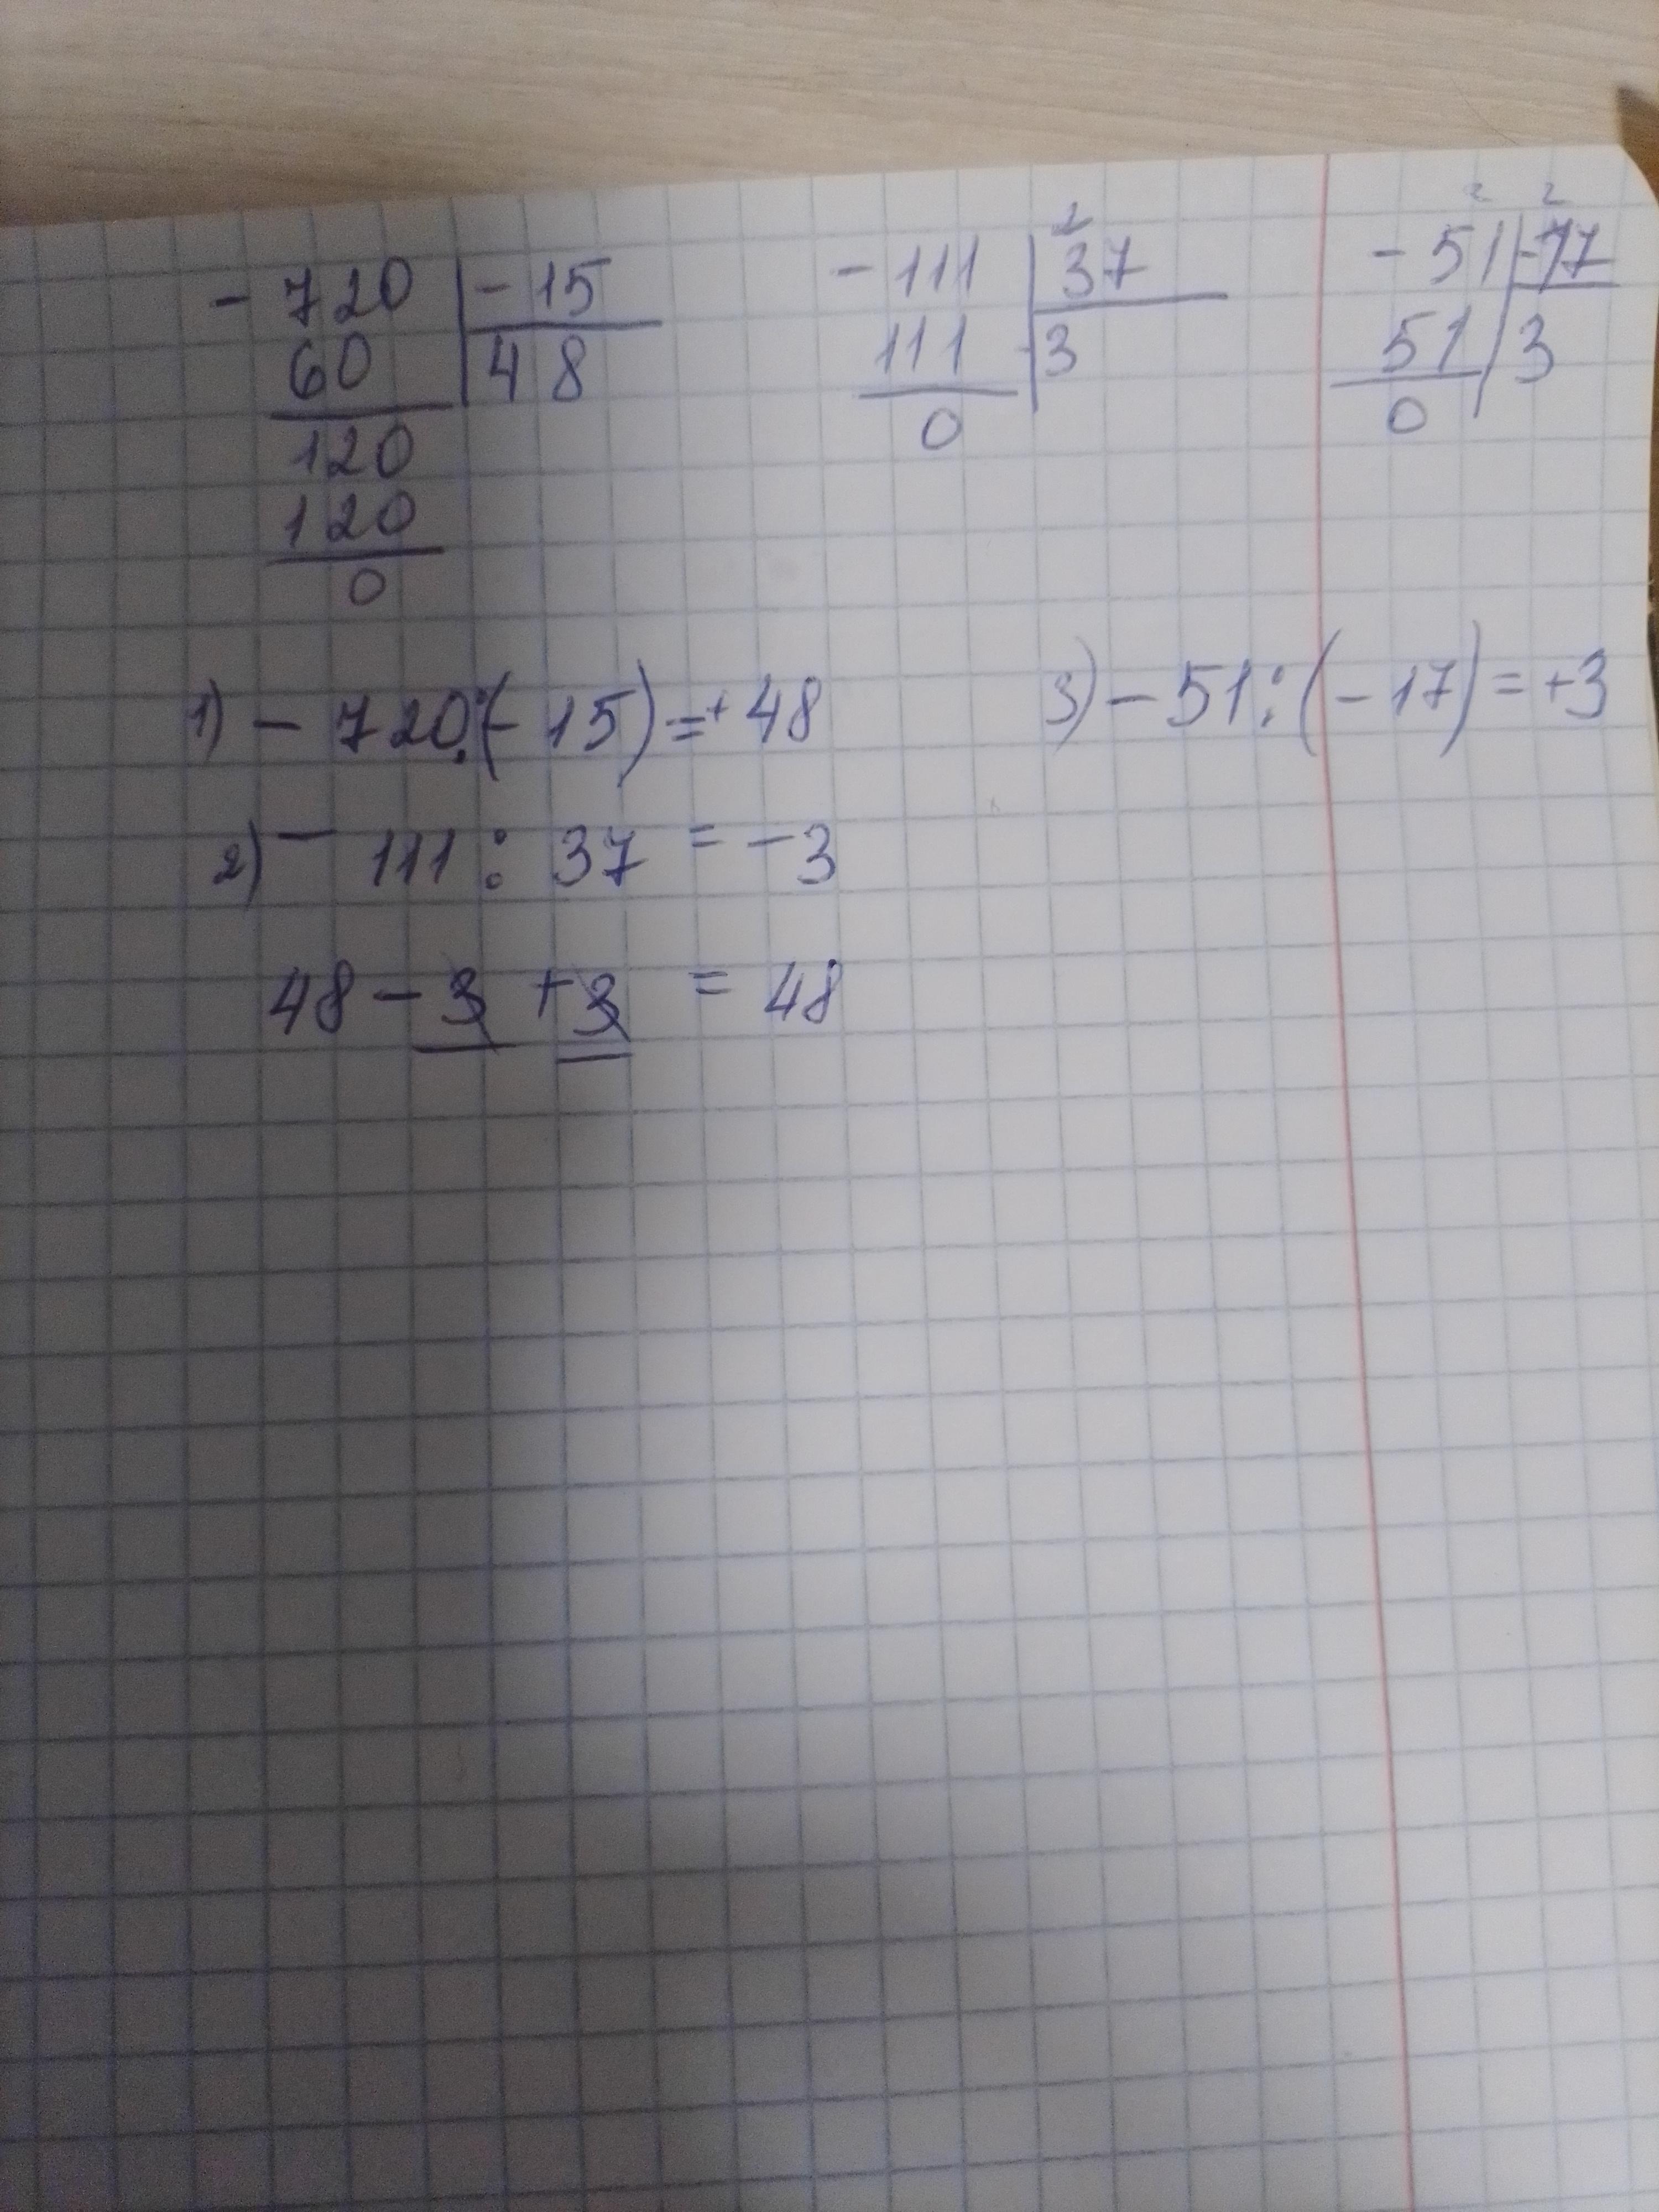 - 720 | - 15
60 | 48
120
120
0
2
- 111 | 37
111 | 3
0
2 2
- 51 | -17
51 | 3
0
1) - 720 : (- 15) = + 48
3) - 51 : (- 17) = + 3
2) - 111 : 37 = - 3
48 - 3 + 3 = 48